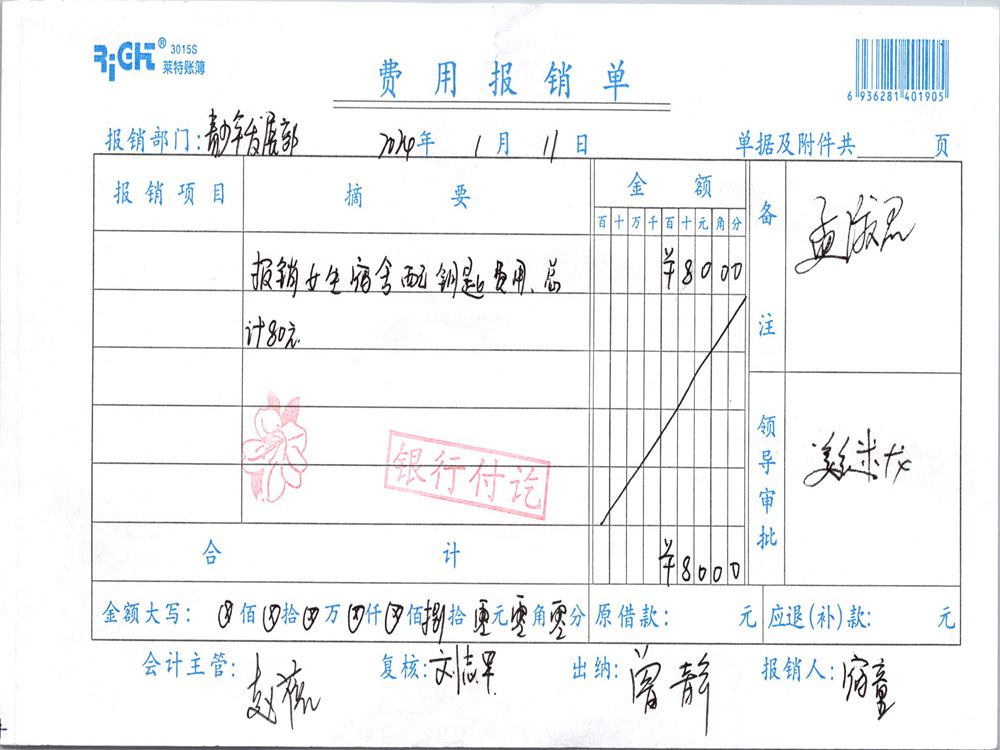 RiGHT® 3015S
莱特账簿
费用报销单
6 936281 401905
报销部门:青少年发展部 2024年 1月 11日 单据及附件共 页
报销项目 摘要 金额 备注
百十万千百十元角分
报销女生宿舍配钥匙费用、总 ¥8000
计80元
银行付讫
领导审批
合计 ¥8000
金额大写: 佰 拾 万 仟 佰捌拾零元零角零分 原借款: 元 应退(补)款: 元
会计主管: 复核:刘志军 出纳:曾静 报销人: